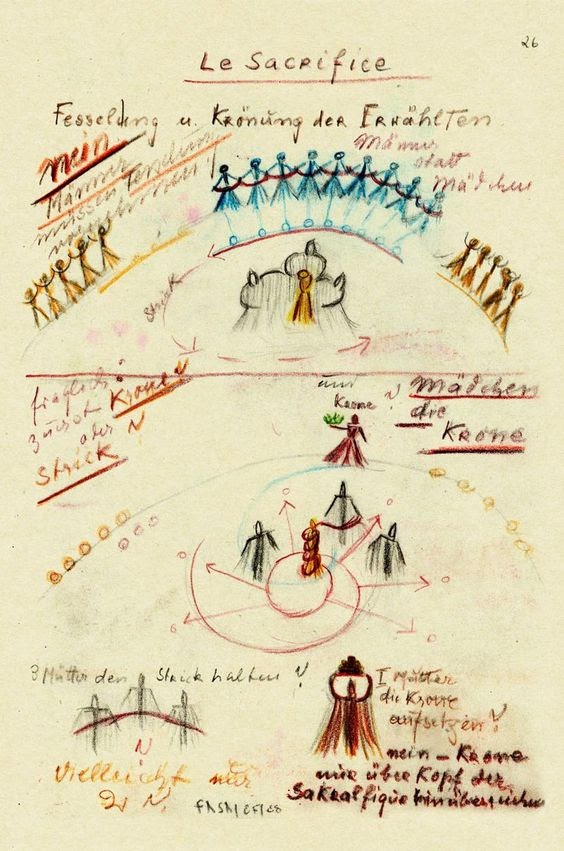 26
Le Sacrifice
Fesselung u. Krönung der Erwählten
nein
Männer
müssen
Männer
statt
Mädchen
Strick
fraglich?
zuerst Krone
oder
Strick
und
Krone
Mädchen
die
Krone
3 Mütter den Strick halten
I Mutter
die Krone
aufsetzen?
nein – Krone
nur über Kopf der
Sakralfigur
vielleicht nur